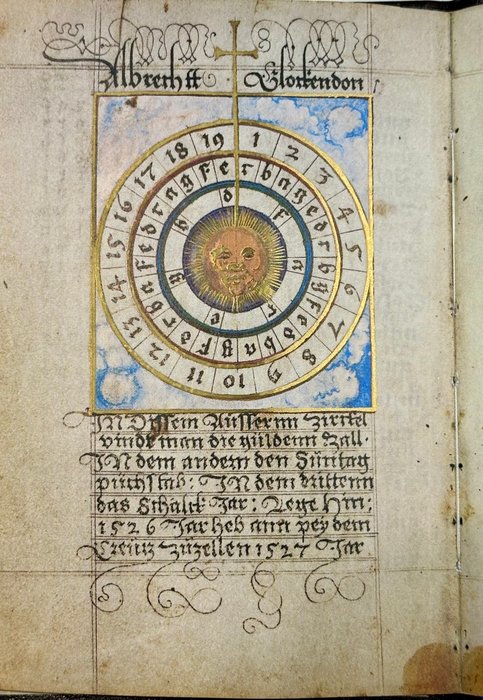 Albrechtt Glockendon
1 2 3 4 5 6 7 8 9 10 11 12 13 14 15 16 17 18 19
F e r b a g e d r b g F e d b a g F d r b a F e d r a g
d F a r e g b
IN Dissem Aüssernn zirckel
vindt man die güldenn Zall.
IN dem andern den Süntag
püchstab: IN dem drittenn
das Schalck Jar: Lege hin:
1526 Jar heb ann pey dem
Creütz zůzellen 1527 Jar